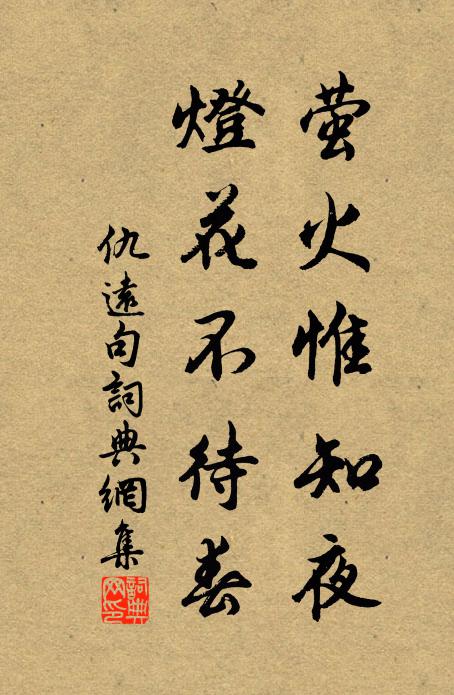 萤火惟知夜
燈花不待春
仇遠句詞典網集
詞典网印